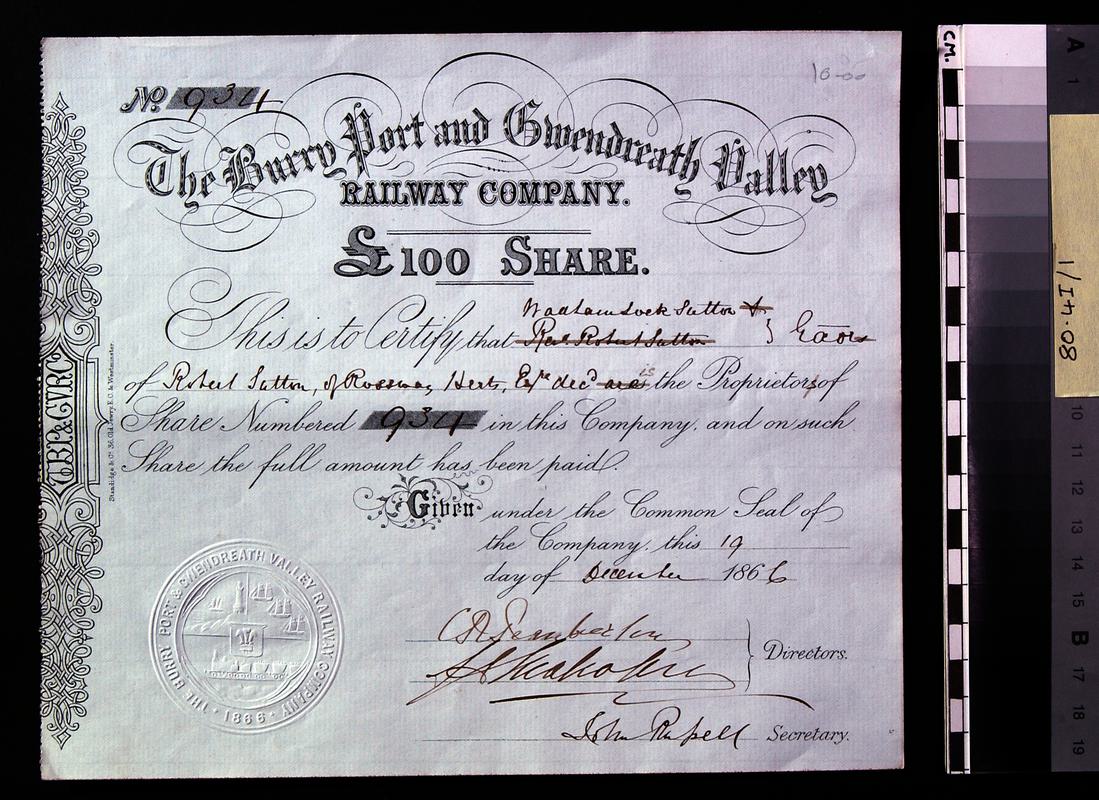 10-00
No. 934
The Burry Port and Gwendreath Valley
RAILWAY COMPANY.
£100 SHARE.
Wadham Lock Sutton &
This is to Certify that Rev. Robert Sutton } Exōrs
of Robert Sutton, of Rossway, Herts, Esqre decd are is the Proprietors of
Share Numbered 934 in this Company, and on such
Share the full amount has been paid.
Given under the Common Seal of
the Company, this 19
day of December 1866
Directors.
John Russell Secretary.
THE BURRY PORT & GWENDREATH VALLEY RAILWAY COMPANY
· 1866 ·
TBP.&GVRC
Standidge & Co. 36, Old Jewry, E.C. & Westminster.
CM.
A
1
08.41/1
10
11
12
13
14
15
B
17
18
19